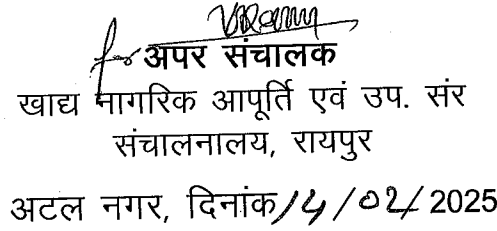 for अपर संचालक
खाद्य नागरिक आपूर्ति एवं उप. संर
संचालनालय, रायपुर
अटल नगर, दिनांक 14/02/2025